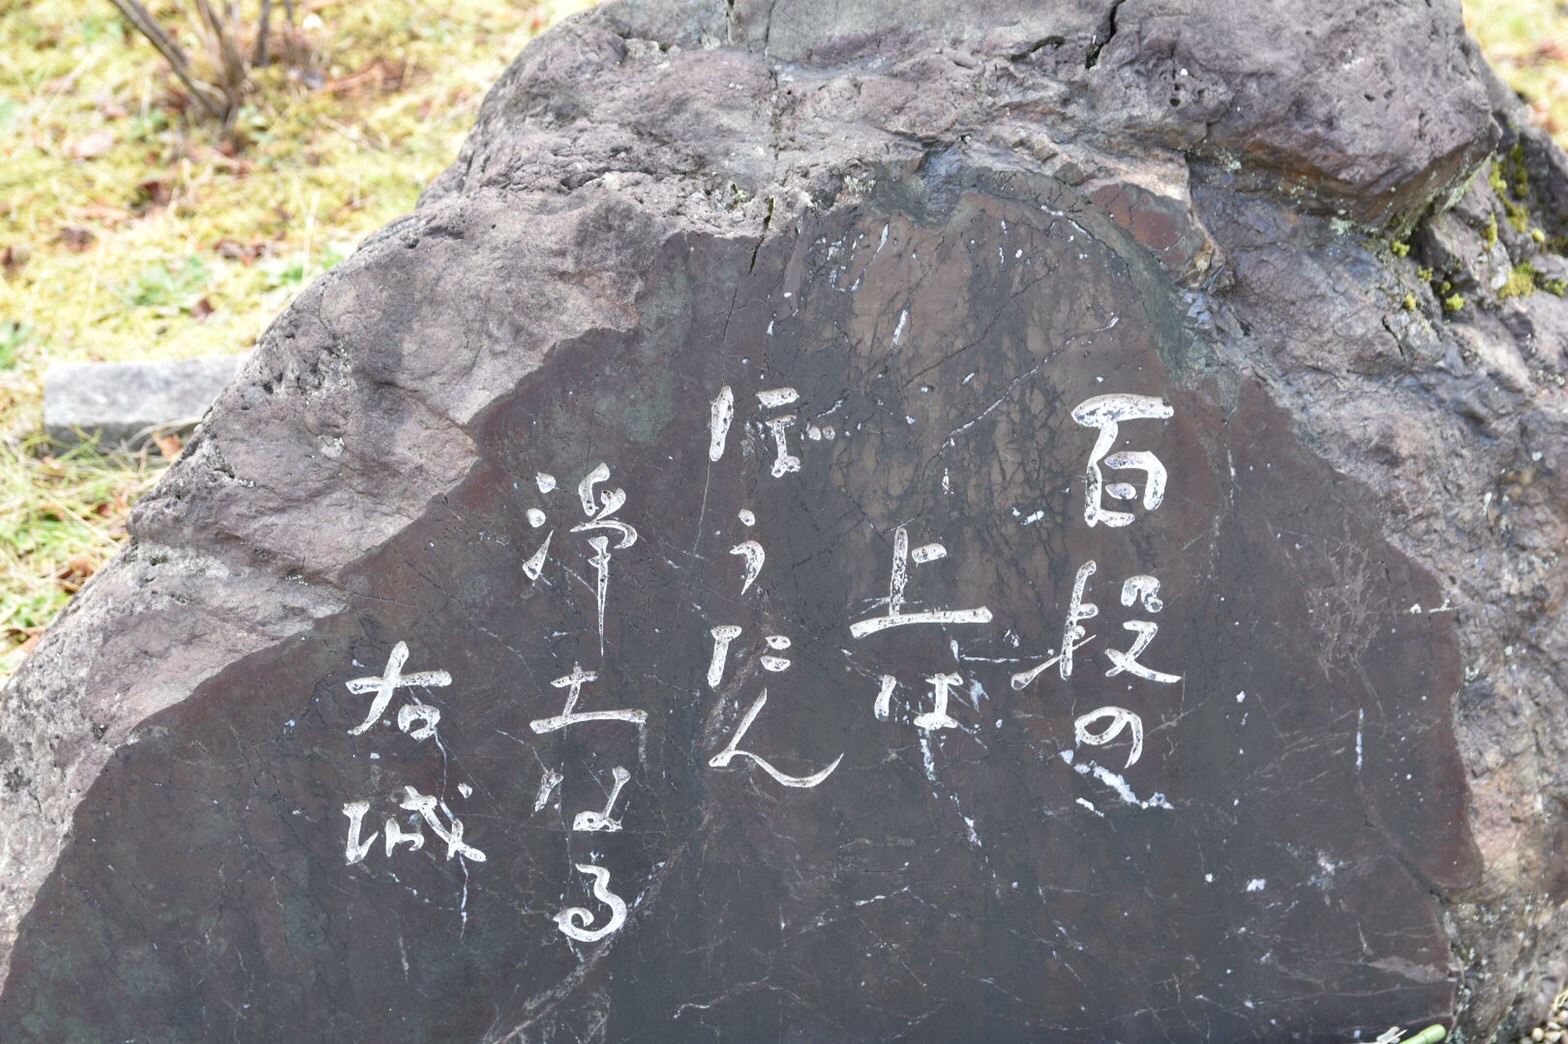 百段の
上は
ぼうたん
浄土なる
右城